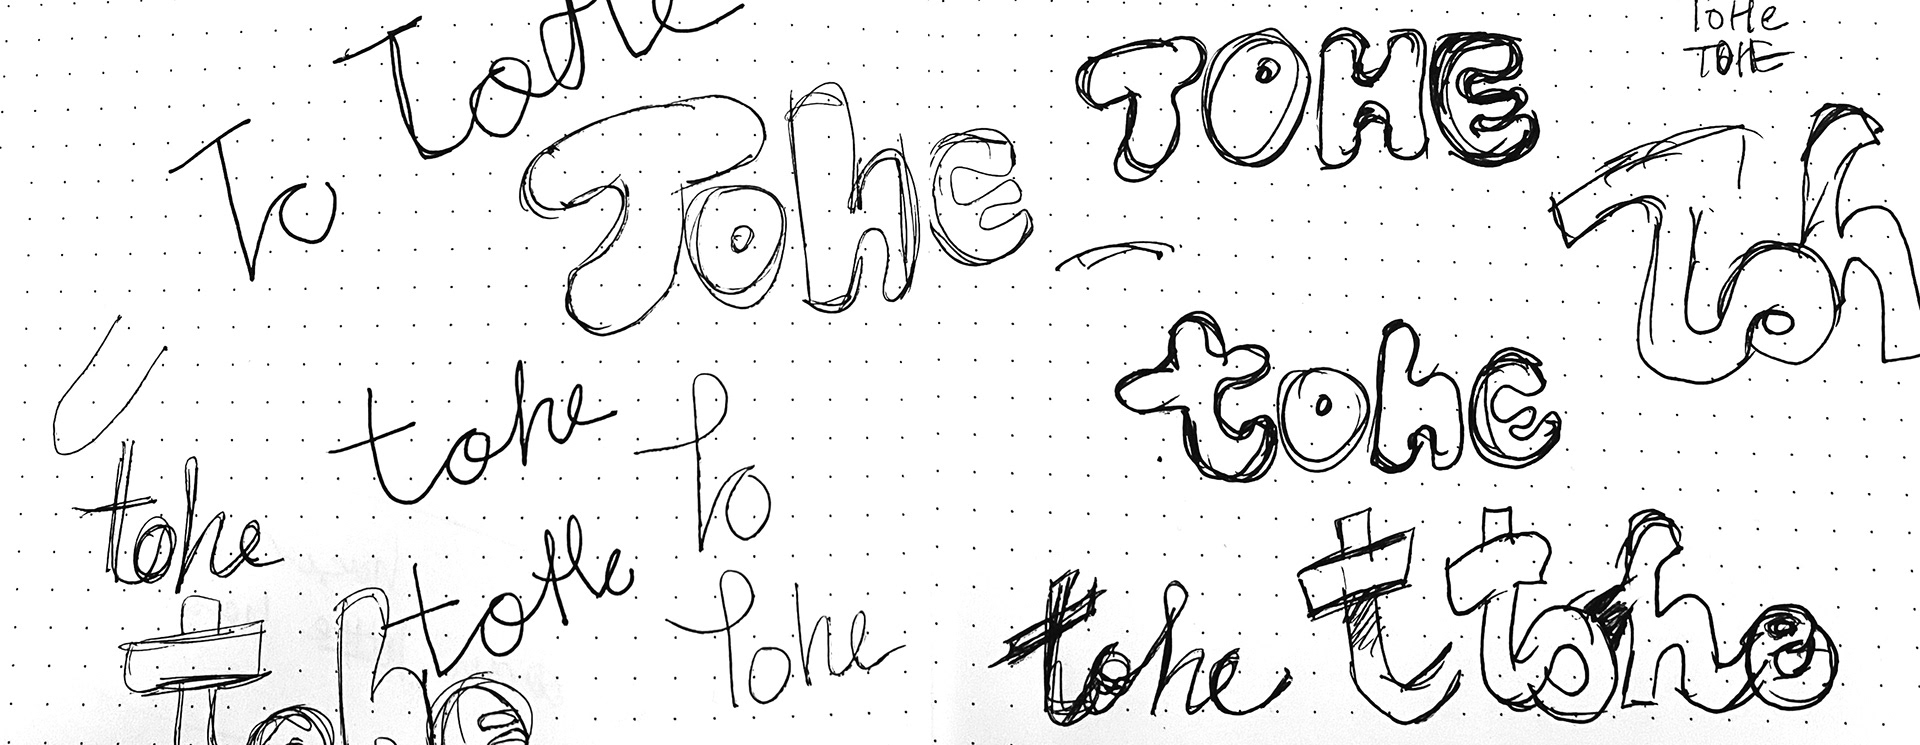 ToHe
To
TOHE
TOHE
ToHe
TOHE
Toh
tohe
To
tohe
tohe
toHe
Tohe
Tohe
tohe
t
Tohe